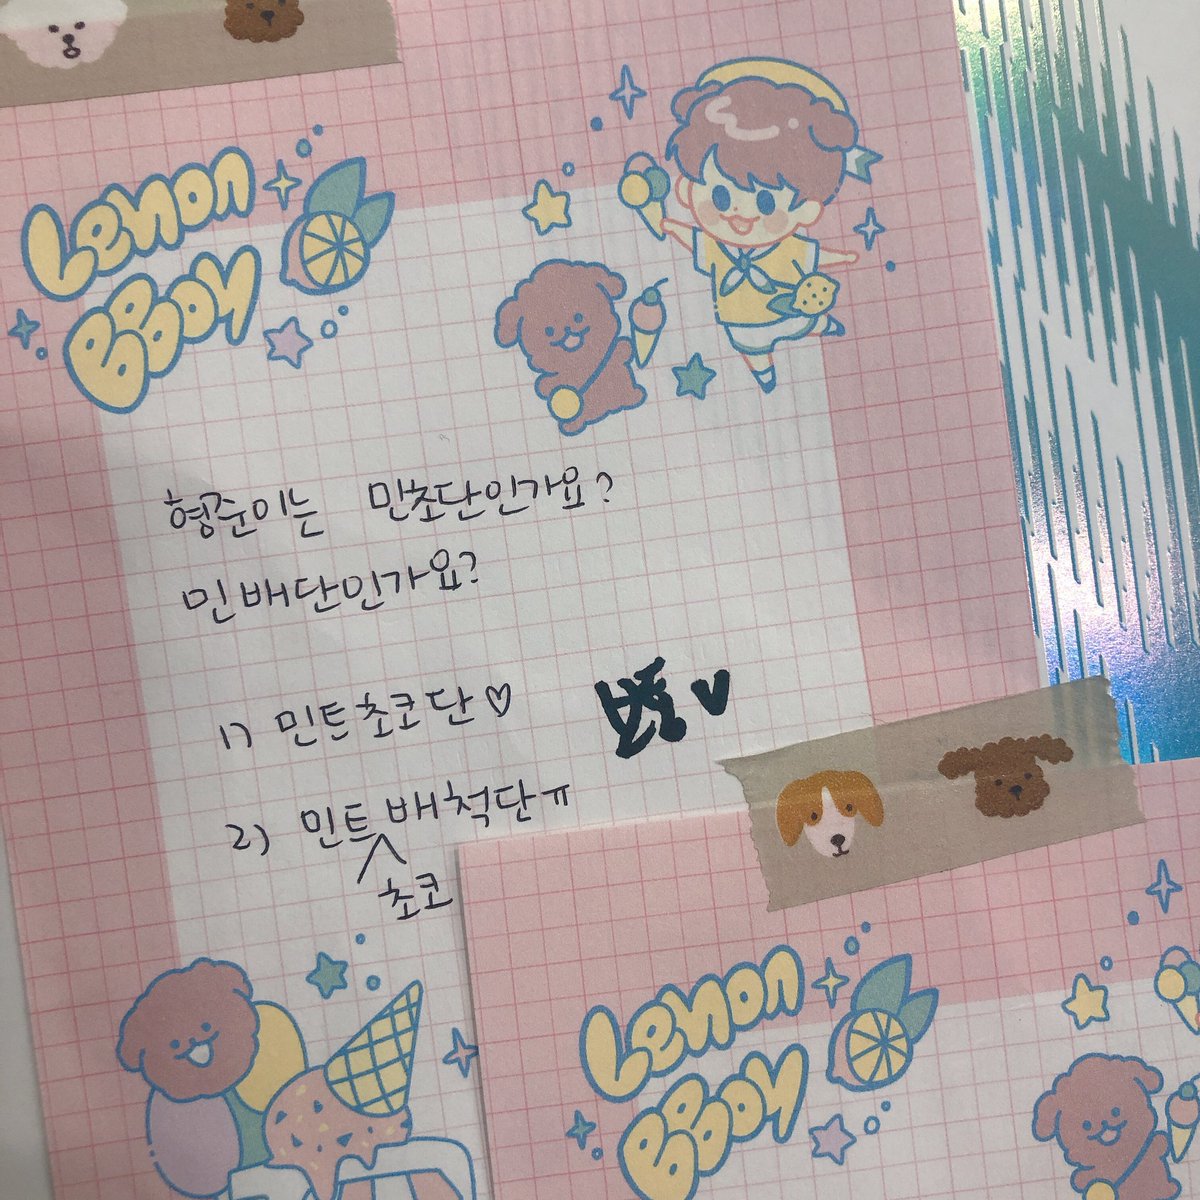 Lemon
BBoy
형준이는 민초단인가요?
민배단인가요?
1) 민트초코단♡
2) 민트배척단ㅠ
초코
Lemon
BBoy